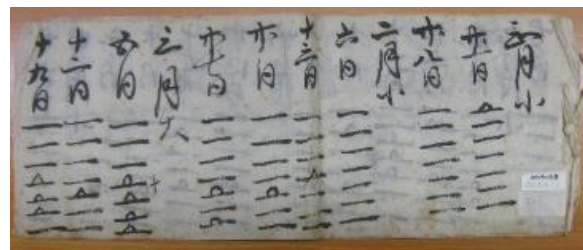 正月小
廿一日
廿八日
二月小
六日
十三日
廿日
廿七日
三月大
五日
十二日
十九日